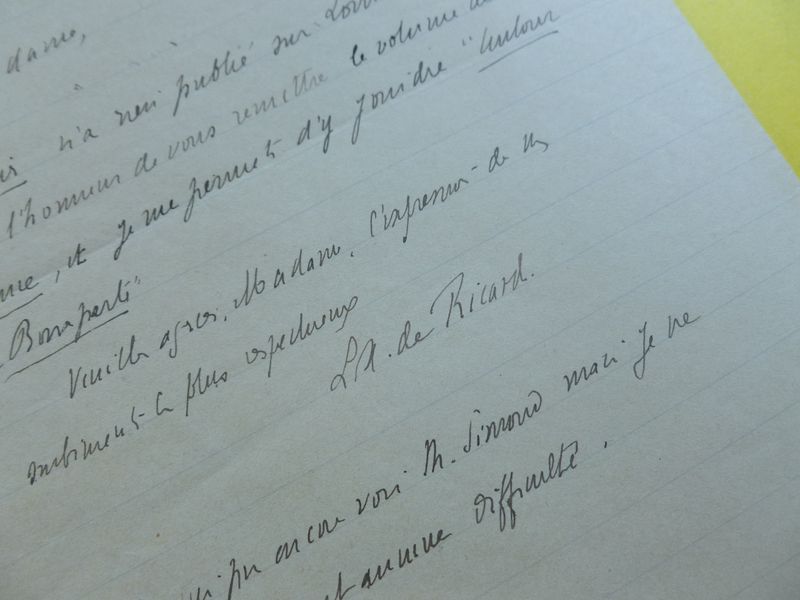 dame,
n'a rien publié sur
l'honneur de vous remettre le volume
, et je me permets d'y joindre "Autour
Bonaparte"
Veuillez agréer, Madame, l'expression de m
sentiments les plus respectueux
L.X. de Ricard.
pu encore voir M. Simond mais je ne
aucune difficulté.